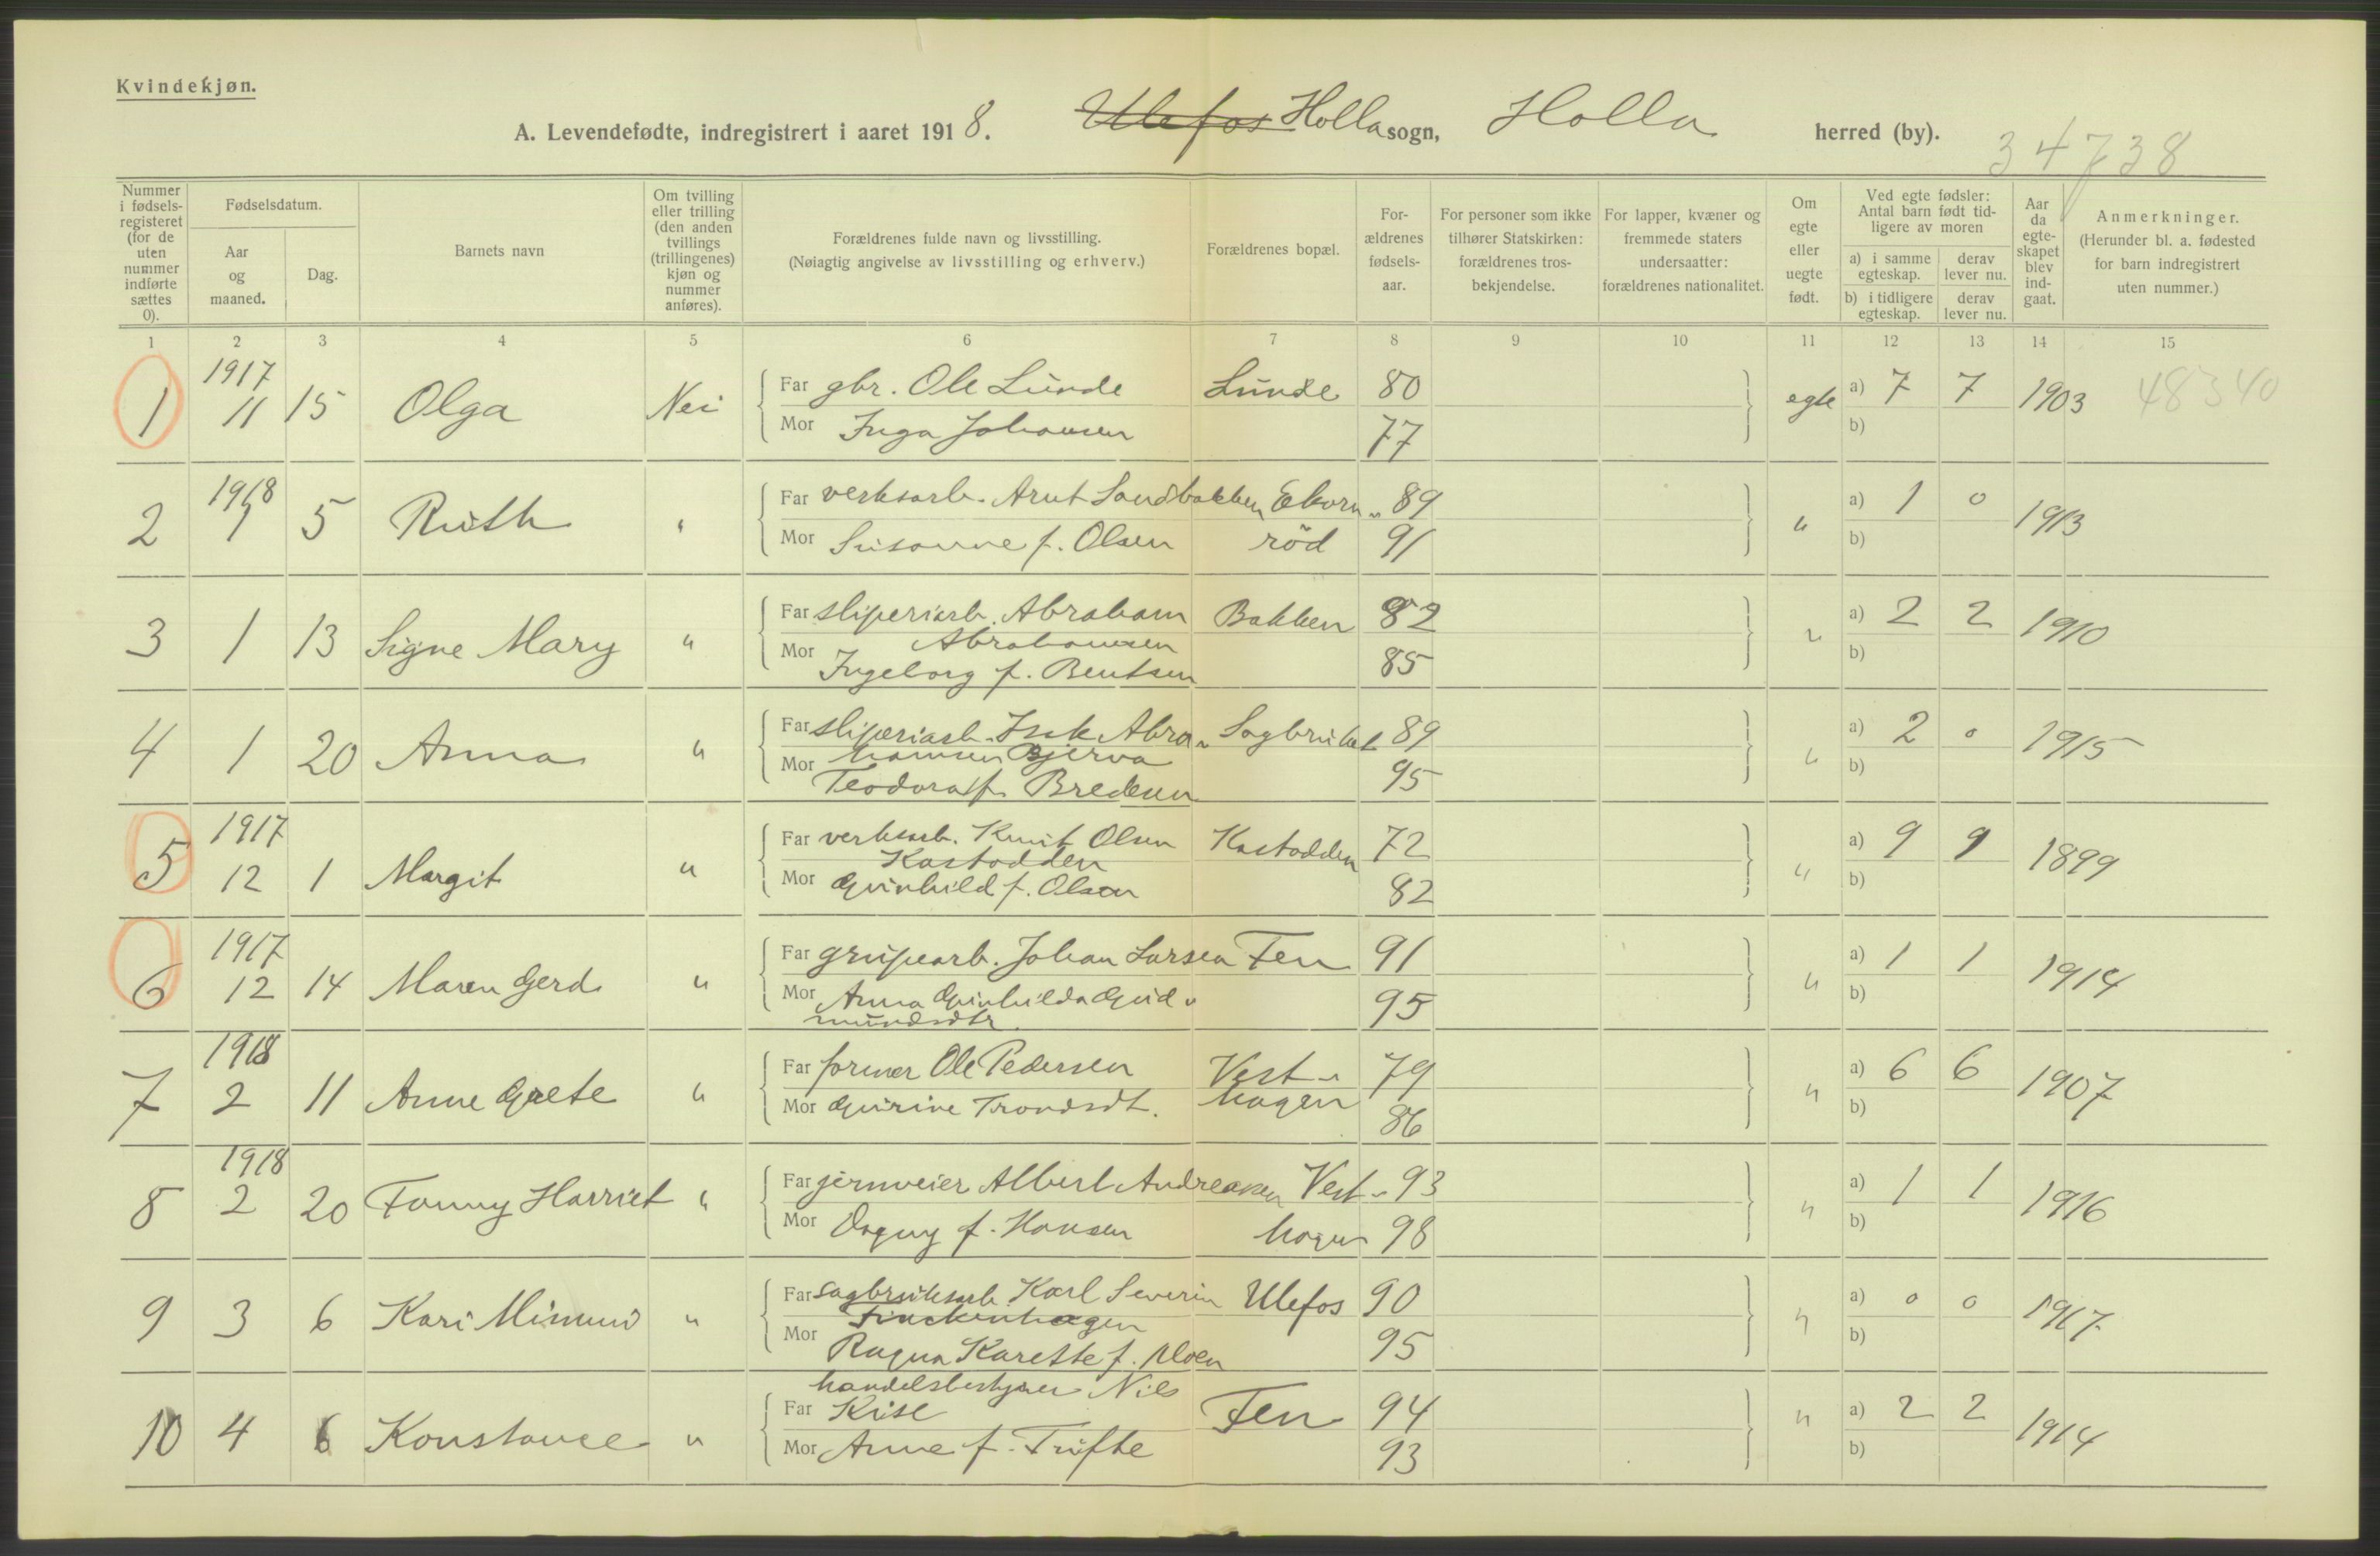 Kvindekjøn.
A. Levendefødte, indregistrert i aaret 1918. Ulefos Holla sogn, Holla herred (by).
34738
Nummer i fødsels-registeret (for de uten nummer indførte sættes 0).
Fødselsdatum.
Aar og maaned.
Dag.
Barnets navn
Om tvilling eller trilling (den anden tvillings (trillingenes) kjøn og nummer anføres).
Forældrenes fulde navn og livsstilling.
(Nøiagtig angivelse av livsstilling og erhverv.)
Forældrenes bopæl.
For-ældrenes fødsels-aar.
For personer som ikke tilhører Statskirken: forældrenes tros-bekjendelse.
For lapper, kvæner og fremmede staters undersaatter: forældrenes nationalitet.
Om egte eller uegte født.
Ved egte fødsler: Antal barn født tid-ligere av moren
a) i samme egteskap.
derav lever nu.
b) i tidligere egteskap.
derav lever nu.
Aar da egte-skapet blev ind-gaat.
Anmerkninger.
(Herunder bl. a. fødested for barn indregistrert uten nummer.)
1 2 3 4 5 6 7 8 9 10 11 12 13 14 15
1 1917 11 15 Olga Nei Far gbr. Ole Lunde Lunde 80 egte a) 7 7 1903 48340
Mor Inga Johansen 77 b)
2 1918 1 5 Ruth " Far verksarb. Arnt Sandbakken Ekorn- 89 " a) 1 0 1913
Mor Susanne f. Olsen rød 91 b)
3 1 13 Signe Mary " Far sliperiarb. Abraham Bakken 82 " a) 2 2 1910
Abrahamsen
Mor Ingeborg f. Bentsen 85 b)
4 1 20 Anna " Far sliperiarb. Isak Abra- Sagbruket 89 " a) 2 0 1915
hamsen Bjerva
Mor Teodora f. Bredesen 95 b)
5 1917 12 1 Margit " Far verksarb. Knut Olsen Kastodden 72 " a) 9 9 1899
Kastodden
Mor Gunhild f. Olsen 82 b)
6 1917 12 14 Maren Gerd " Far grupearb. Johan Larsen Fen 91 " a) 1 1 1914
Mor Anna Gunhilda Gud-
mundsdtr. 95 b)
7 1918 2 11 Anne Grete " Far former Ole Pedersen Vest- 79 " a) 6 6 1907
Mor Gurine Trondsdt. hagen 86 b)
8 1918 2 20 Fanny Harriet " Far jernveier Albert Andreasen Vest- 93 " a) 1 1 1916
Mor Dagny f. Hansen hagen 98 b)
9 3 6 Kari " Far sagbruksarb. Karl Severin Ulefos 90 " a) 0 0 1917
Finckenhagen
Mor Ragna Karette f. Moen 95 b)
handelsbestyrer Nils
10 4 6 Konstance " Far Kise Fen 94 " a) 2 2 1914
Mor Anne f. Tufte 93 b)